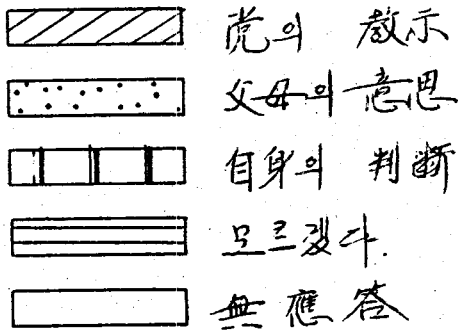 党의 教示
父母의 意思
自身의 判断
모르겠다.
無應答